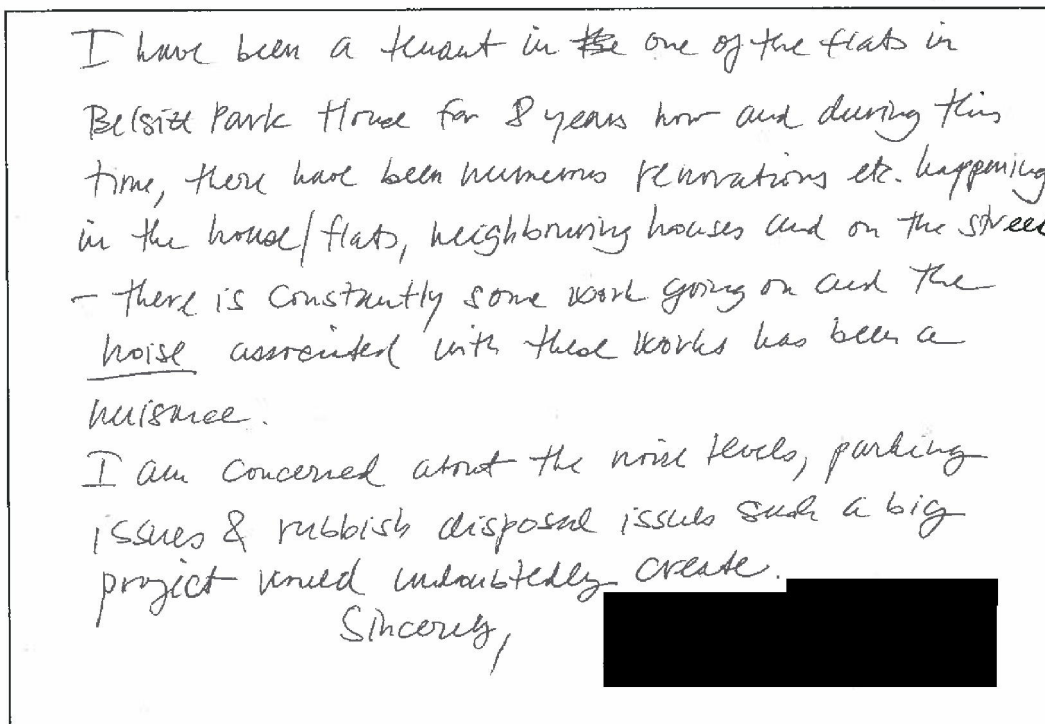 I have been a tenant in the one of the flats in
Belsize Park House for 8 years now and during this
time, there have been numerous renovations etc. happening
in the house/flats, neighbouring houses and on the street
- there is constantly some work going on and the
noise associated with these works has been a
nuisance.
I am concerned about the noise levels, parking
issues & rubbish disposal issues such a big
project would undoubtedly create.
Sincerely,